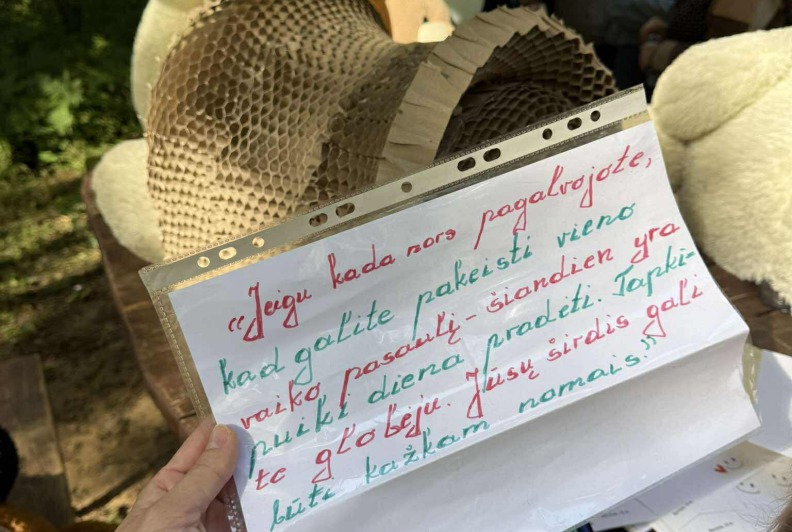 “Jeigu kada nors pagalvojote,
kad galite pakeisti vieno
vaiko pasaulį - šiandien yra
puiki diena pradėti. Tapki-
te globėju. Jūsų širdis gali
būti kažkam namais.”